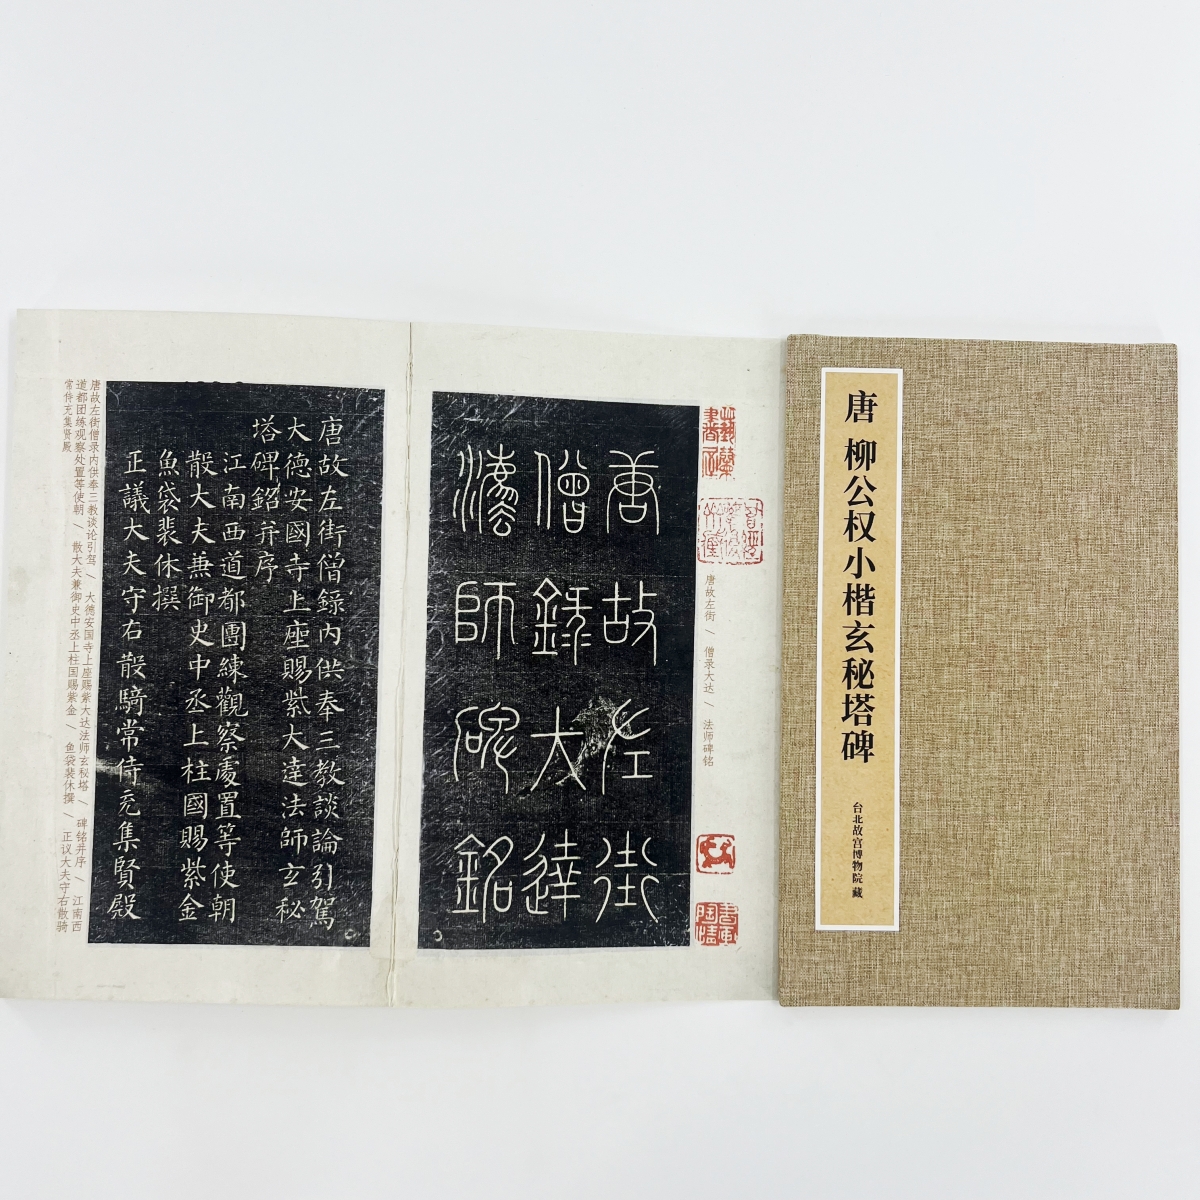 唐 柳公权小楷玄秘塔碑
台北故宫博物院藏
唐故左街 / 僧录大达 / 法师碑铭
書畫陶情
唐故左街
僧錄大達
灋師碑銘
唐故左街僧錄內供奉三教談論引駕
大德安國寺上座賜紫大達法師玄秘
塔碑銘并序
江南西道都團練觀察處置等使朝
散大夫兼御史中丞上柱國賜紫金
魚袋裴休撰
正議大夫守右散騎常侍充集賢殿
唐故左街僧录内供奉三教谈论引驾 / 大德安国寺上座赐紫大达法师玄秘塔 / 碑铭并序 / 江南西
道都团练观察处置等使朝 / 散大夫兼御史中丞上柱国赐紫金 / 鱼袋裴休撰 / 正议大夫守右散骑
常侍充集贤殿